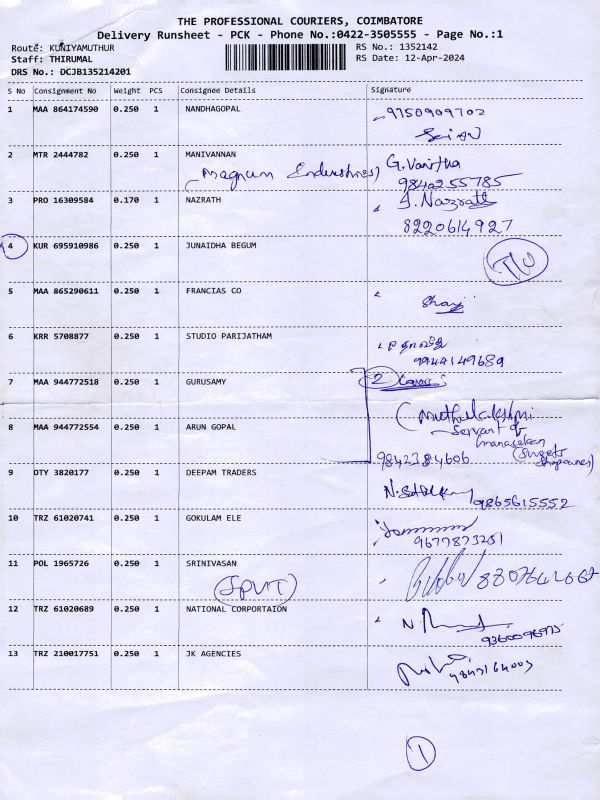 THE PROFESSIONAL COURIERS, COIMBATORE
Delivery Runsheet - PCK - Phone No.:0422-3505555 - Page No.:1
Route: KUNIYAMUTHUR
RS No.: 1352142
Staff: THIRUMAL
RS Date: 12-Apr-2024
DRS No.: DCJB135214201
S No Consignment No Weight PCS Consignee Details Signature
1 MAA 864174590 0.250 1 NANDHAGOPAL 9750909702
2 MTR 2444782 0.250 1 MANIVANNAN G. Vanitha
Magnum 9842255785
3 PRO 16309584 0.170 1 NAZRATH J. Nazrath
8220614927
4 KUR 695910986 0.250 1 JUNAIDHA BEGUM
5 MAA 865290611 0.250 1 FRANCIAS CO
6 KRR 5708877 0.250 1 STUDIO PARIJATHAM
9944149689
7 MAA 944772518 0.250 1 GURUSAMY 2
(Muthulakshmi
8 MAA 944772554 0.250 1 ARUN GOPAL Servant of
9842384606
9 DTY 3820177 0.250 1 DEEPAM TRADERS
9865615552
10 TRZ 61020741 0.250 1 GOKULAM ELE
9677873251
11 POL 1965726 0.250 1 SRINIVASAN
12 TRZ 61020689 0.250 1 NATIONAL CORPORTAION
13 TRZ 210017751 0.250 1 JK AGENCIES
1